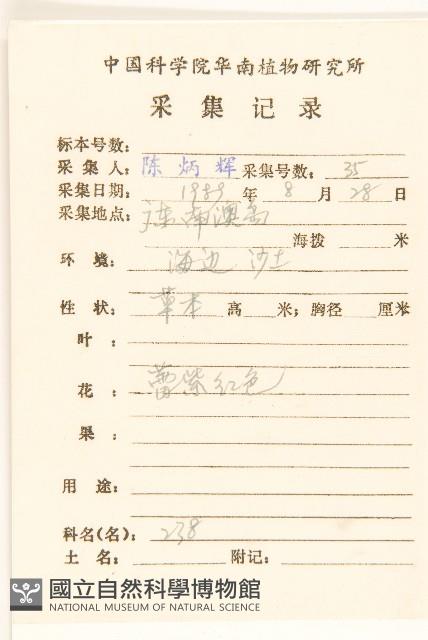 中国科学院华南植物研究所
采集记录
标本号数:
采集人: 陈炳辉 采集号数: 35
采集日期: 1989 年 8 月 28 日
采集地点: 广东南澳岛
海拨 米
环境: 海边 沙土
性状: 草本 高 米; 胸径 厘米
叶:
花: 蕾紫红色
果:
用途:
科名(名): 238
土名: 附记:
國立自然科學博物館
NATIONAL MUSEUM OF NATURAL SCIENCE